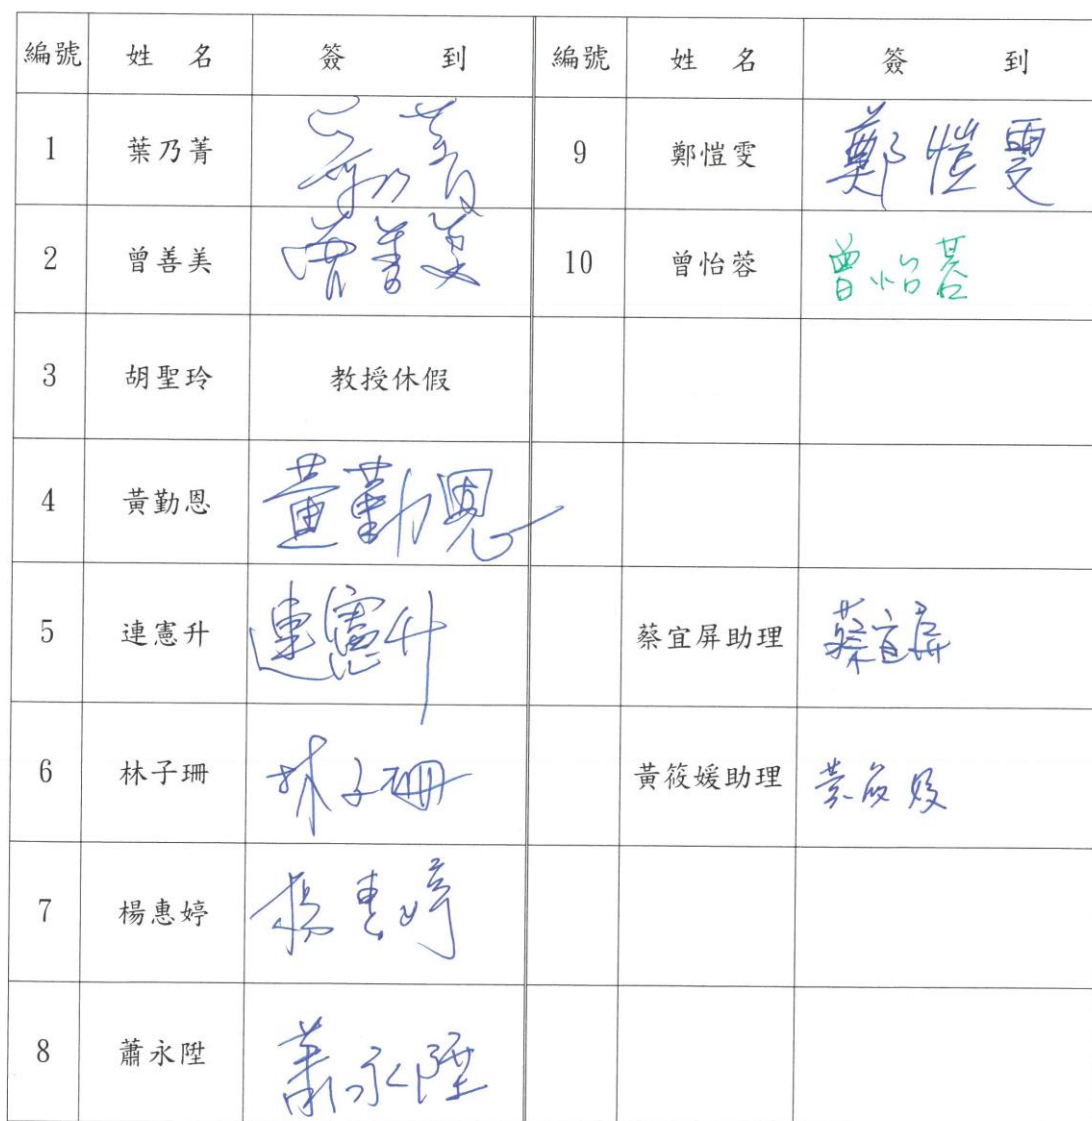 編號 姓 名 簽 到 編號 姓 名 簽 到
1 葉乃菁 葉乃菁 9 鄭愷雯 鄭愷雯
2 曾善美 曾善美 10 曾怡蓉 曾怡蓉
3 胡聖玲 教授休假
4 黃勤恩 黃勤恩
5 連憲升 連憲升 蔡宜屏助理 蔡宜屏
6 林子珊 林子珊 黃筱媛助理 黃筱媛
7 楊惠婷 楊惠婷
8 蕭永陞 蕭永陞